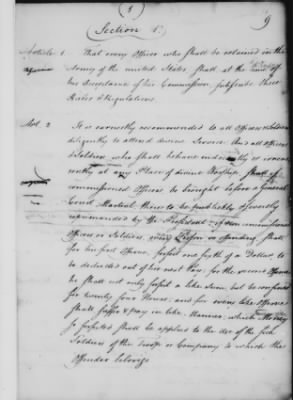 (1)
9
Section 1.
Article 1. That every Officer who shall be retained in the
Army of the united States shall at the time of
his Acceptance of his Commission, subscribe these
Rules & Regulations.
Art. 2 It is earnestly recommended to all Officers & Soldiers
diligently to attend divine Service. And all officers
& Soldiers, who shall behave indecently or irreve-
rently at any Place of divine Worship, shall if
commissioned Officers be brought before a General
Court Martial, there to be publickly & severely
reprimanded by the President; if non commissioned
Officers or Soldiers, every Person so offending, shall
for his first Offence, forfeit one sixth of a Dollar, to
be deducted out of his next Pay; for the second Offence
he shall not only forfeit a like sum, but be confined
for twenty four Hours; and for every like Offence
shall suffer & pay in like Manner; which Money
so forfeited shall be applied to the Use of the sick
Soldiers of the Troop or Company to which the
Offender belongs